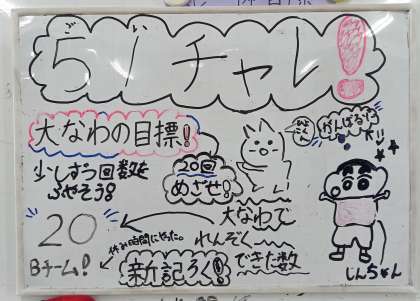 ご い
51チャレ!
大なわの目標!
少しずつ回数を
ふやそう!
20回
めざせ!
がんばるゾ
大なわで
れんぞく
できた数
20
Bチーム!
休み時間にやった。
新記ろく!
しんちゃん